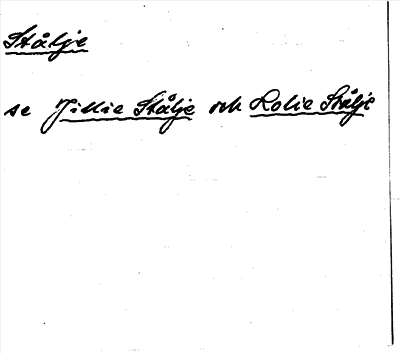 Stålje
se Jillie Stålje och Lolie Stålje